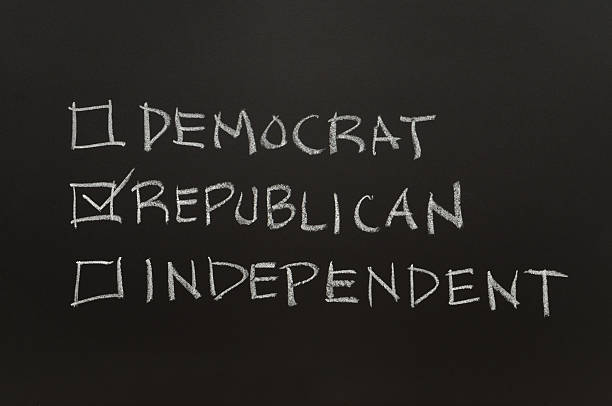 DEMOCRAT
REPUBLICAN
INDEPENDENT